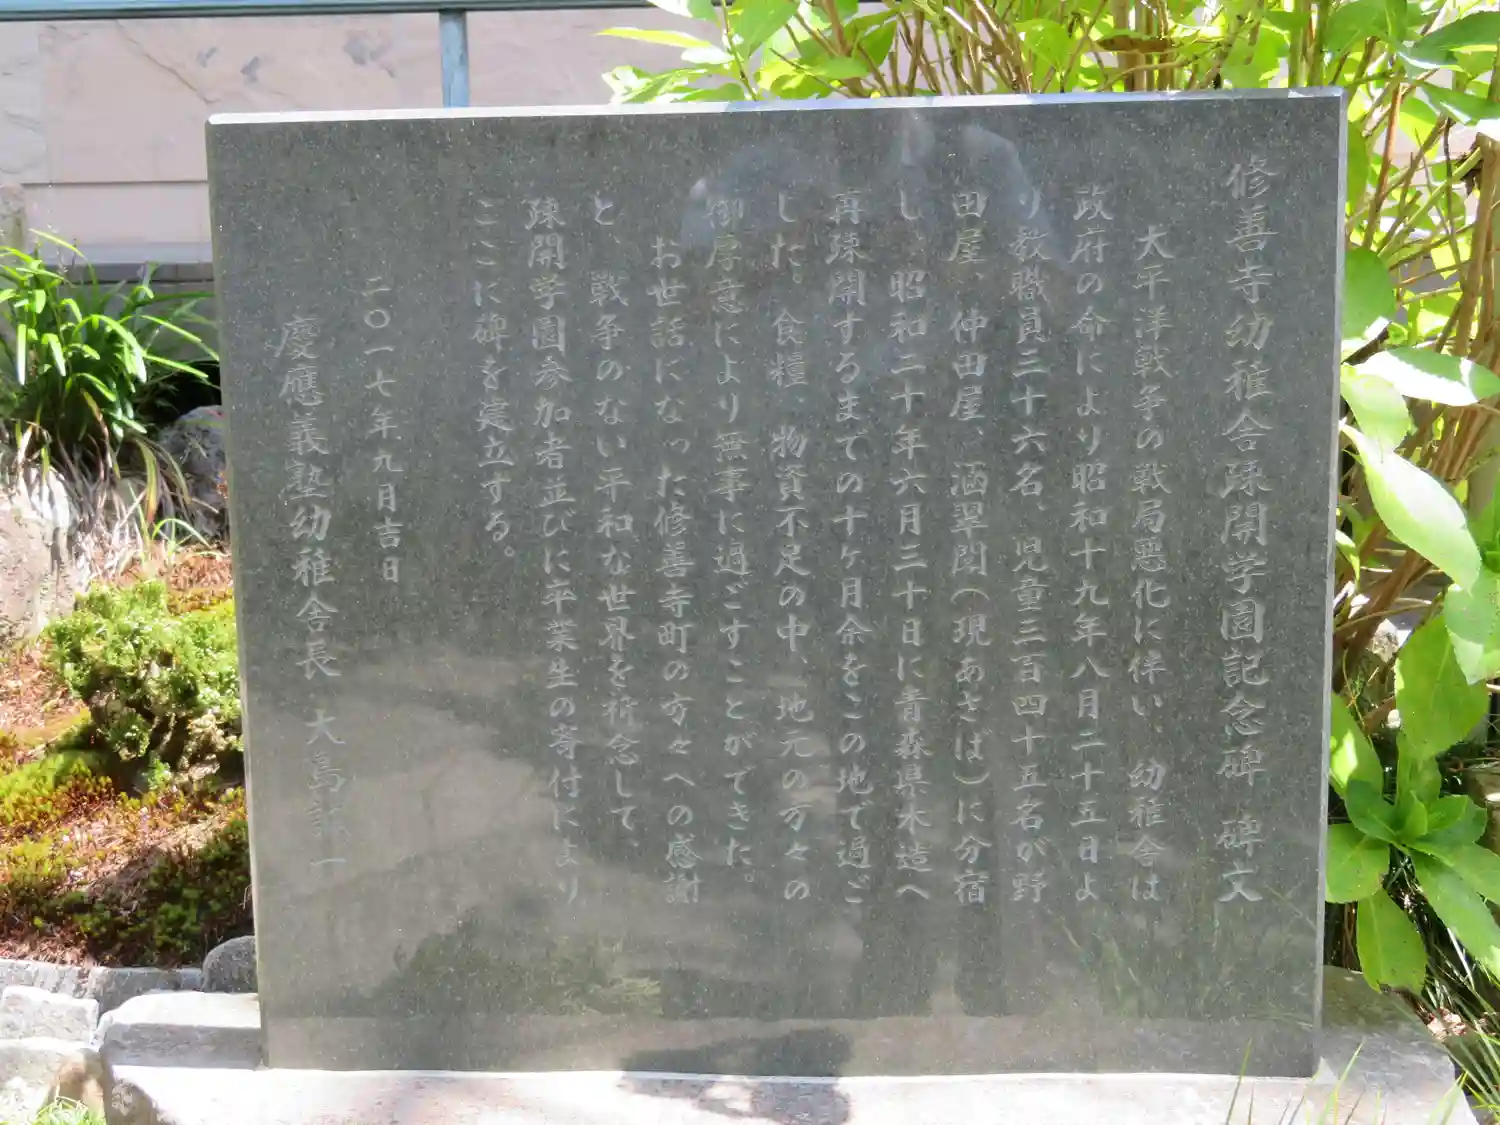 修善寺幼稚舎疎開学園記念碑 碑文
太平洋戦争の戦局悪化に伴い、幼稚舎は
政府の命により昭和十九年八月二十五日よ
り教職員三十六名、児童三百四十五名が野
田屋、仲田屋、涵翠閣(現あさば)に分宿
し、昭和二十年六月三十日に青森県木造へ
再疎開するまでの十ヶ月余をこの地で過ご
した。食糧、物資不足の中、地元の方々の
御厚意により無事に過ごすことができた。
お世話になった修善寺町の方々への感謝
と、戦争のない平和な世界を祈念して、
疎開学園参加者並びに卒業生の寄付により
ここに碑を建立する。
二〇一七年九月吉日
慶應義塾幼稚舎長 大島誠一